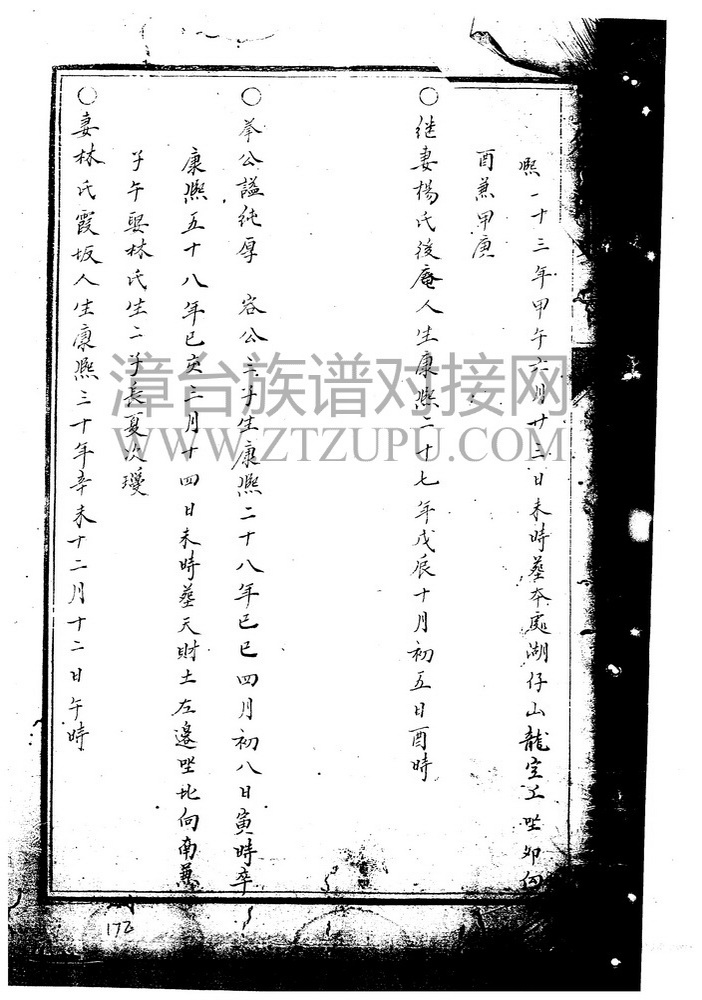 熙一十三年甲午六月廿三日未時葬本處湖仔山龍空上坐卯向
酉兼甲庚
○继妻楊氏後庵人生康熙二十七年戊辰十月初五日酉時
○举公謚純厚 容公三子生康熙二十八年己巳四月初八日寅時卒
康熙五十八年己亥三月十四日未時葬天財土左邊坐北向南兼
子午娶林氏生二子長夏次璦
○妻林氏霞坂人生康熙三十年辛未十二月十二日午時
172
漳台族谱对接网
WWW.ZTZUPU.COM